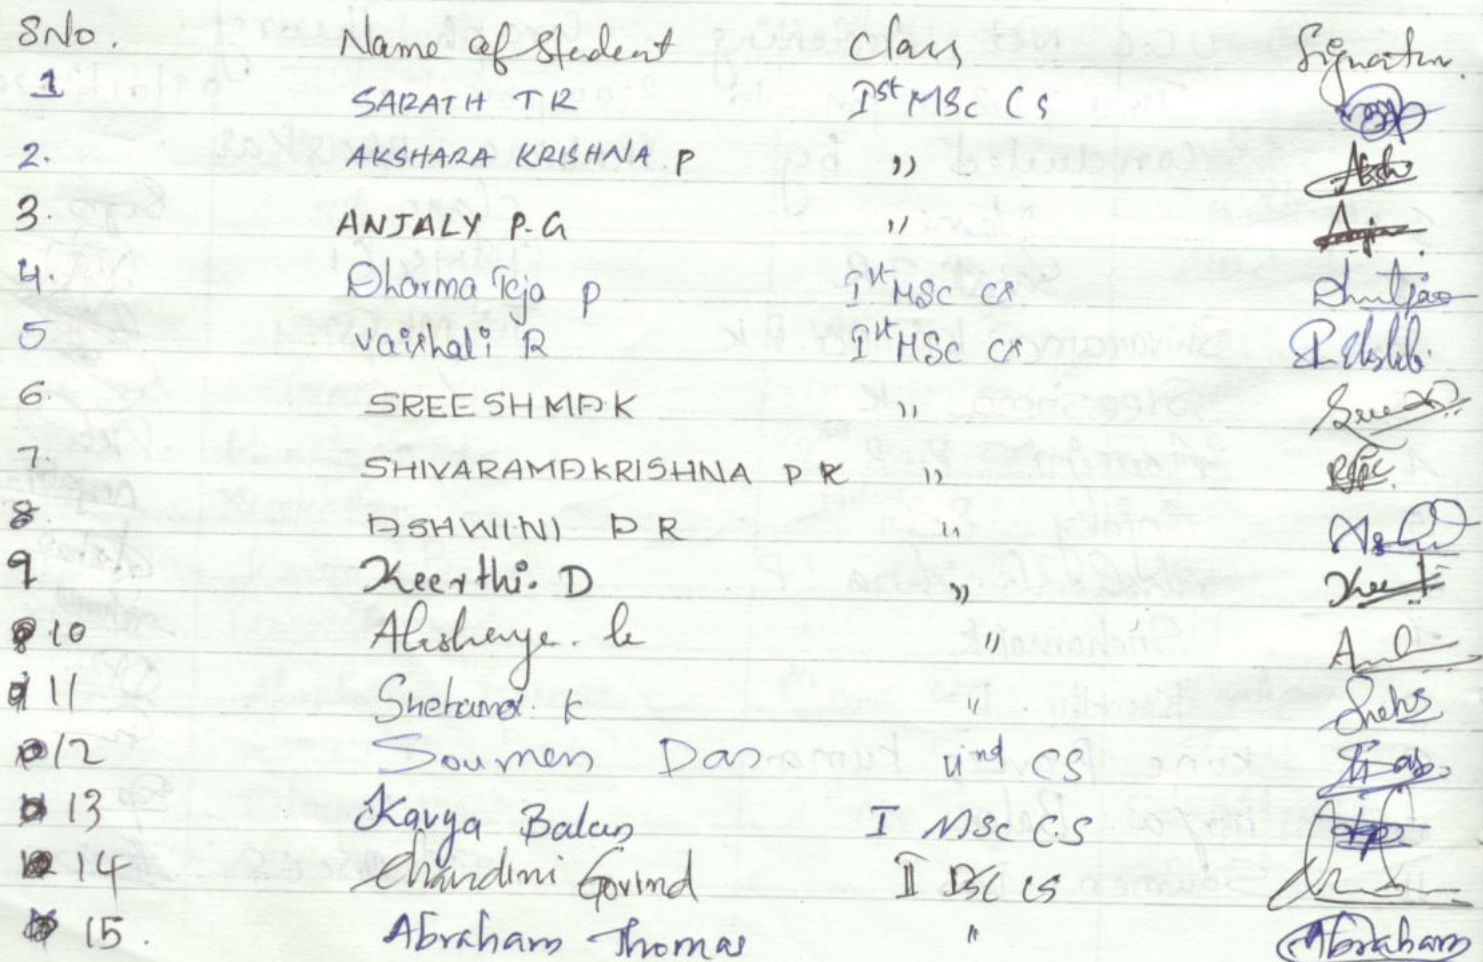 SNo. Name of Student Class Signature
1 SARATH T R Ist MSc CS
2. AKSHARA KRISHNA. P ,,
3. ANJALY P.G ,,
4. Dharma Teja P Ist MSc CS
5 Vaishali R Ist MSc CS
6. SREESHMA K ,,
7. SHIVARAMAKRISHNA P R ,,
8. ASHWINI P R ,,
9 Keerthi. D ,, Keert
10 Akshaya. k ,,
11 Snehana. K ,, Sneha
12 Soumen Das IInd CS Das
13 Kavya Balan I MSc CS
14 Chandini Govind II DSC CS
15. Abraham Thomas ,, Abraham